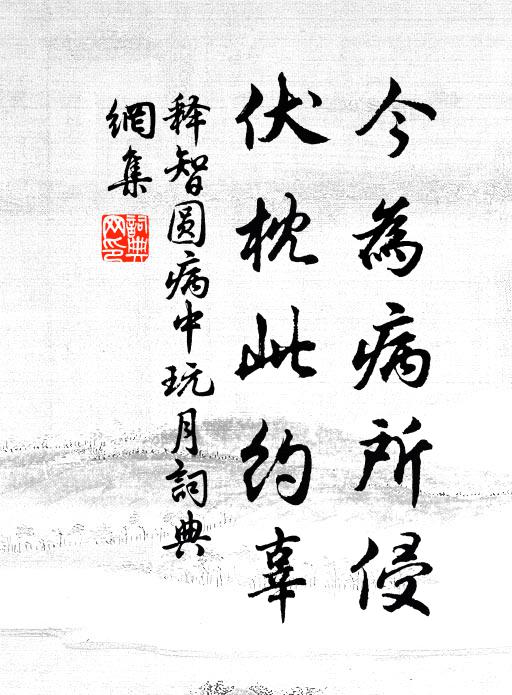 今為病所侵
伏枕此約辜
释智圆病中玩月詞典
網集
詞典
网印